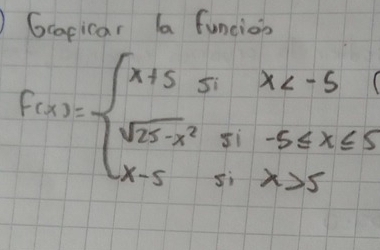 ) Graficar la función
x+5 si x < -5 (
f(x)= √25-x² si -5 ≤ x ≤ 5
x-5 si x > 5